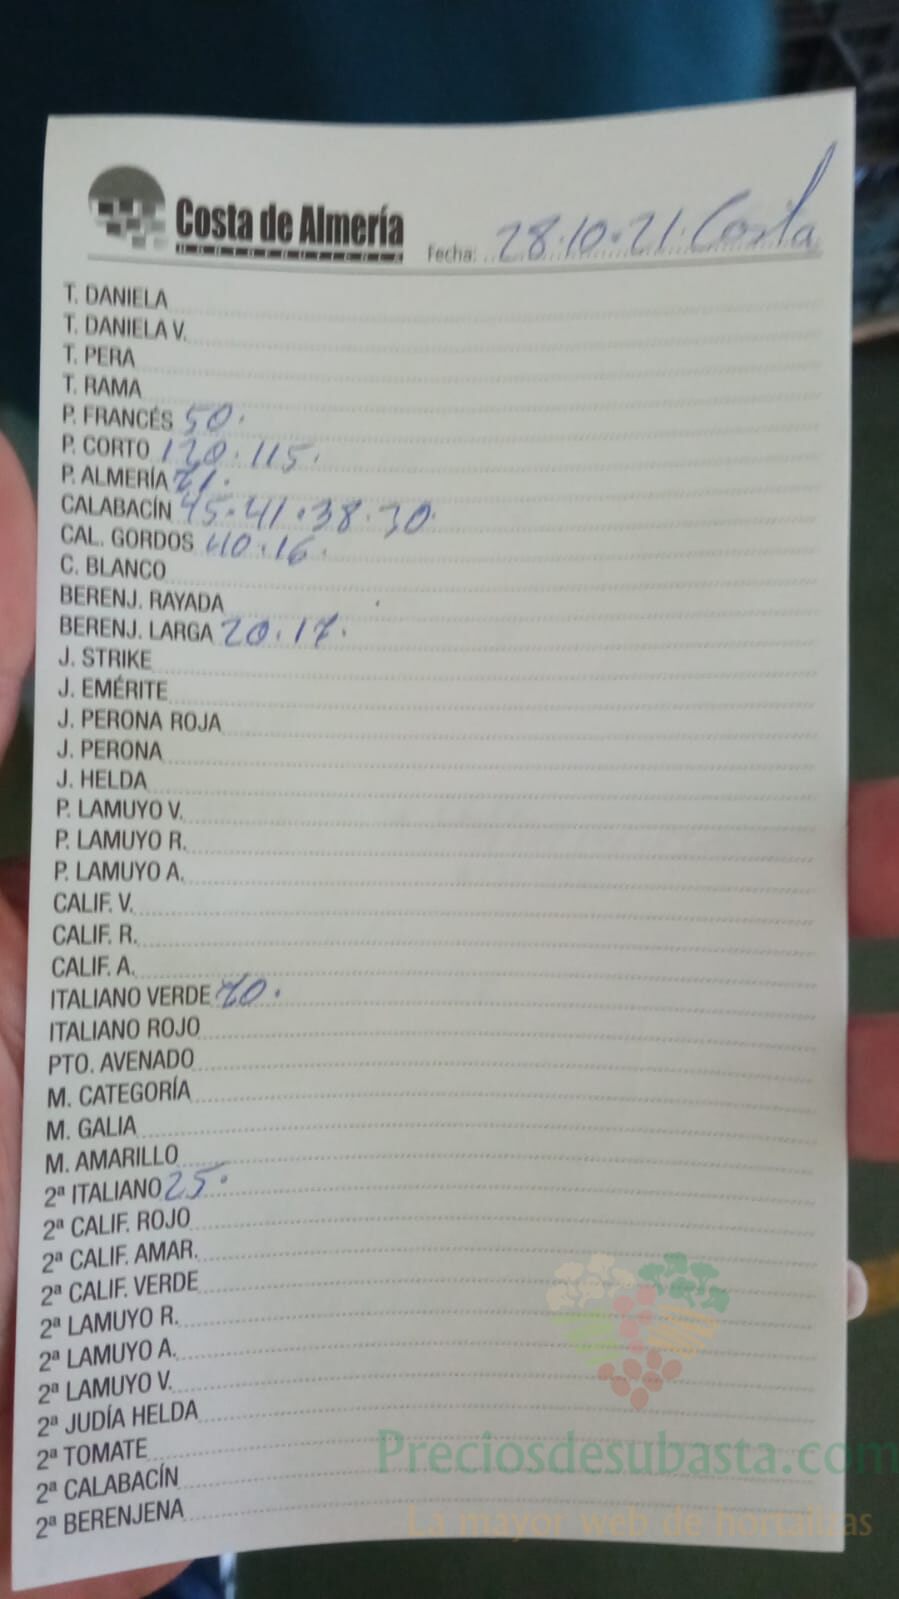 Costa de Almería
HORTOFRUTÍCOLA
Fecha: 28.10.21. Costa
T. DANIELA
T. DANIELA V.
T. PERA
T. RAMA
P. FRANCÉS 50.
P. CORTO 120.115.
P. ALMERÍA
CALABACÍN 45.41.38.30.
CAL. GORDOS 40.16.
C. BLANCO
BERENJ. RAYADA
BERENJ. LARGA 20.17.
J. STRIKE
J. EMÉRITE
J. PERONA ROJA
J. PERONA
J. HELDA
P. LAMUYO V.
P. LAMUYO R.
P. LAMUYO A.
CALIF. V.
CALIF. R.
CALIF. A.
ITALIANO VERDE
ITALIANO ROJO
PTO. AVENADO
M. CATEGORÍA
M. GALIA
M. AMARILLO
2ª ITALIANO 25.
2ª CALIF. ROJO
2ª CALIF. AMAR.
2ª CALIF. VERDE
2ª LAMUYO R.
2ª LAMUYO A.
2ª LAMUYO V.
2ª JUDÍA HELDA
2ª TOMATE
2ª CALABACÍN
2ª BERENJENA
Preciosdesubasta.com
La mayor web de hortalizas